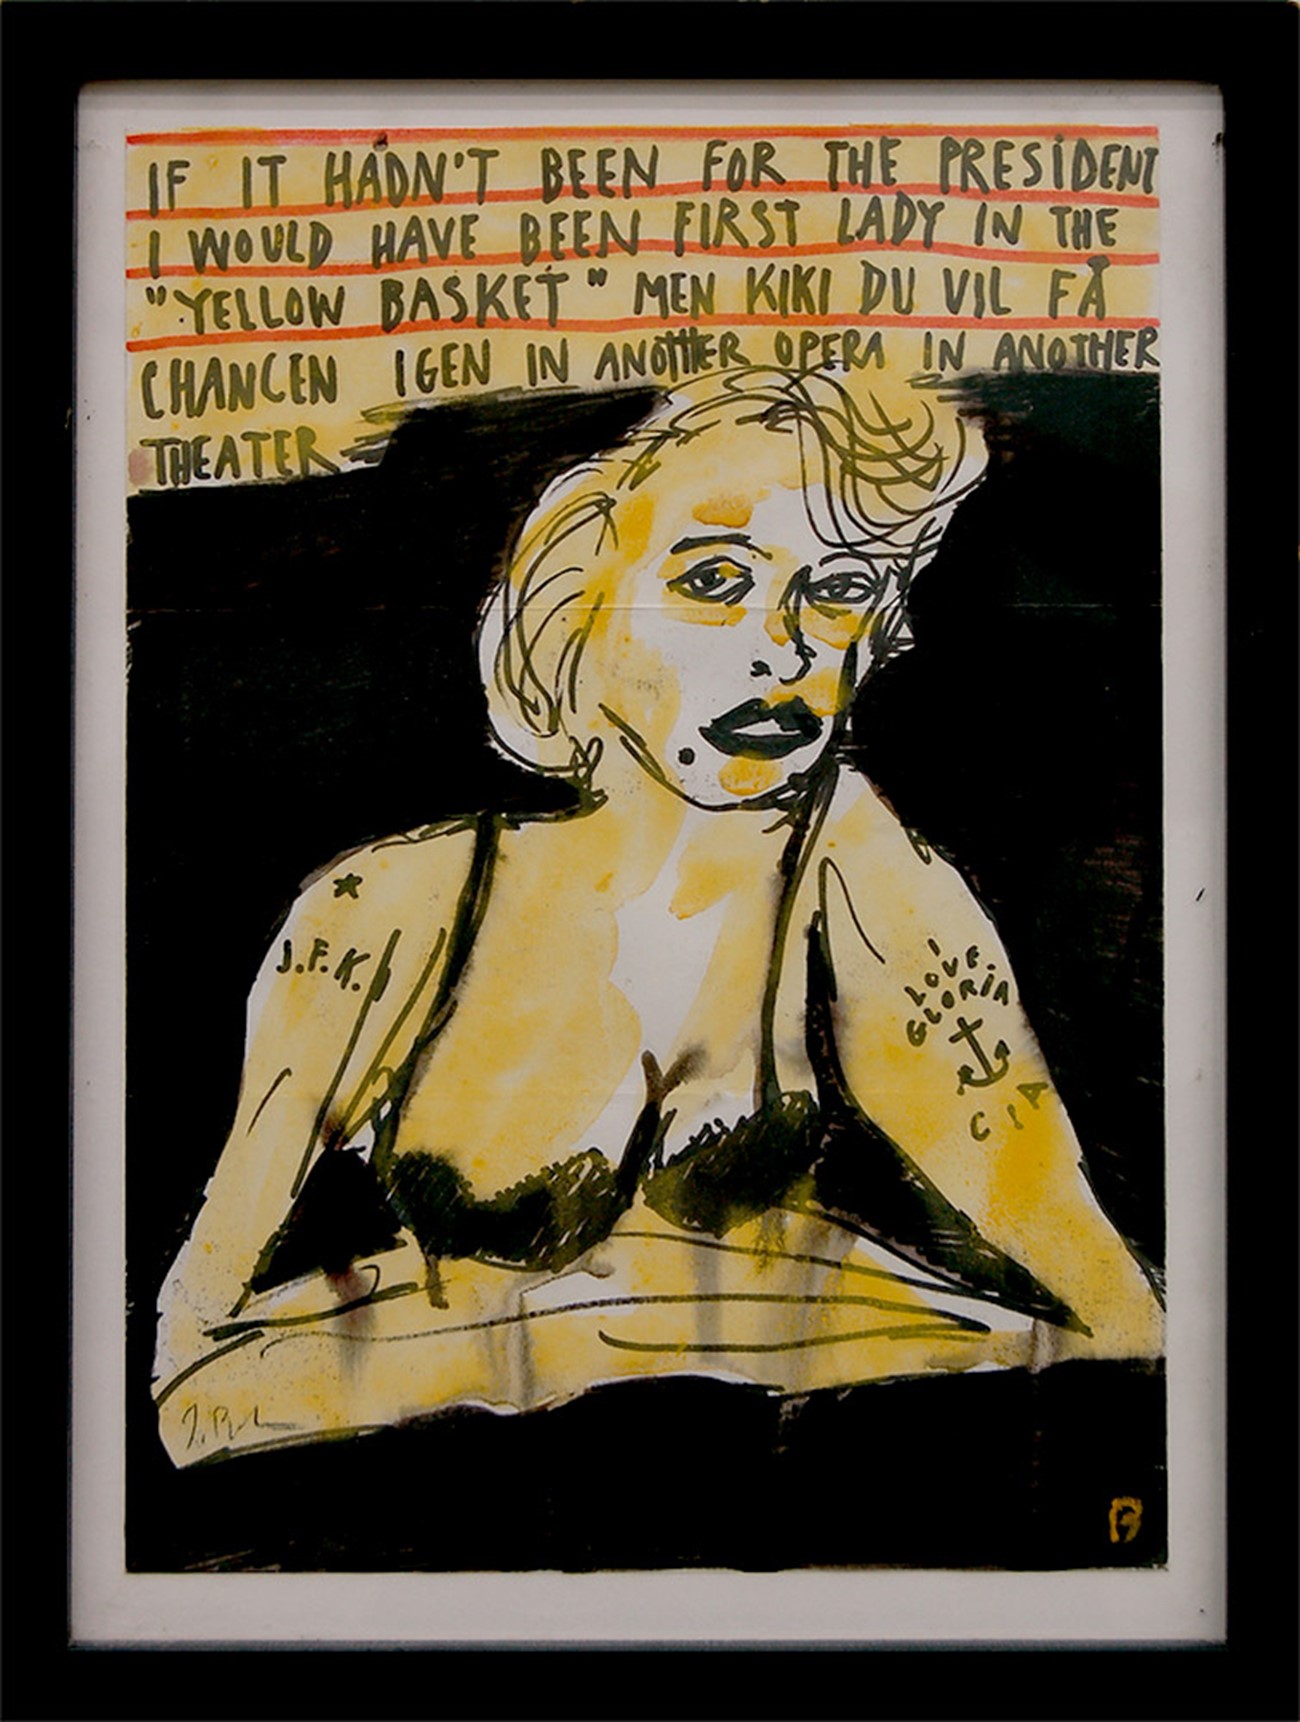 IF IT HADN'T BEEN FOR THE PRESIDENT
I WOULD HAVE BEEN FIRST LADY IN THE
"YELLOW BASKET" MEN KIKI DU VIL FÅ
CHANCEN IGEN IN ANOTHER OPERA IN ANOTHER
THEATER
J.F.K.
I
LOVE
GLORIA
CIA